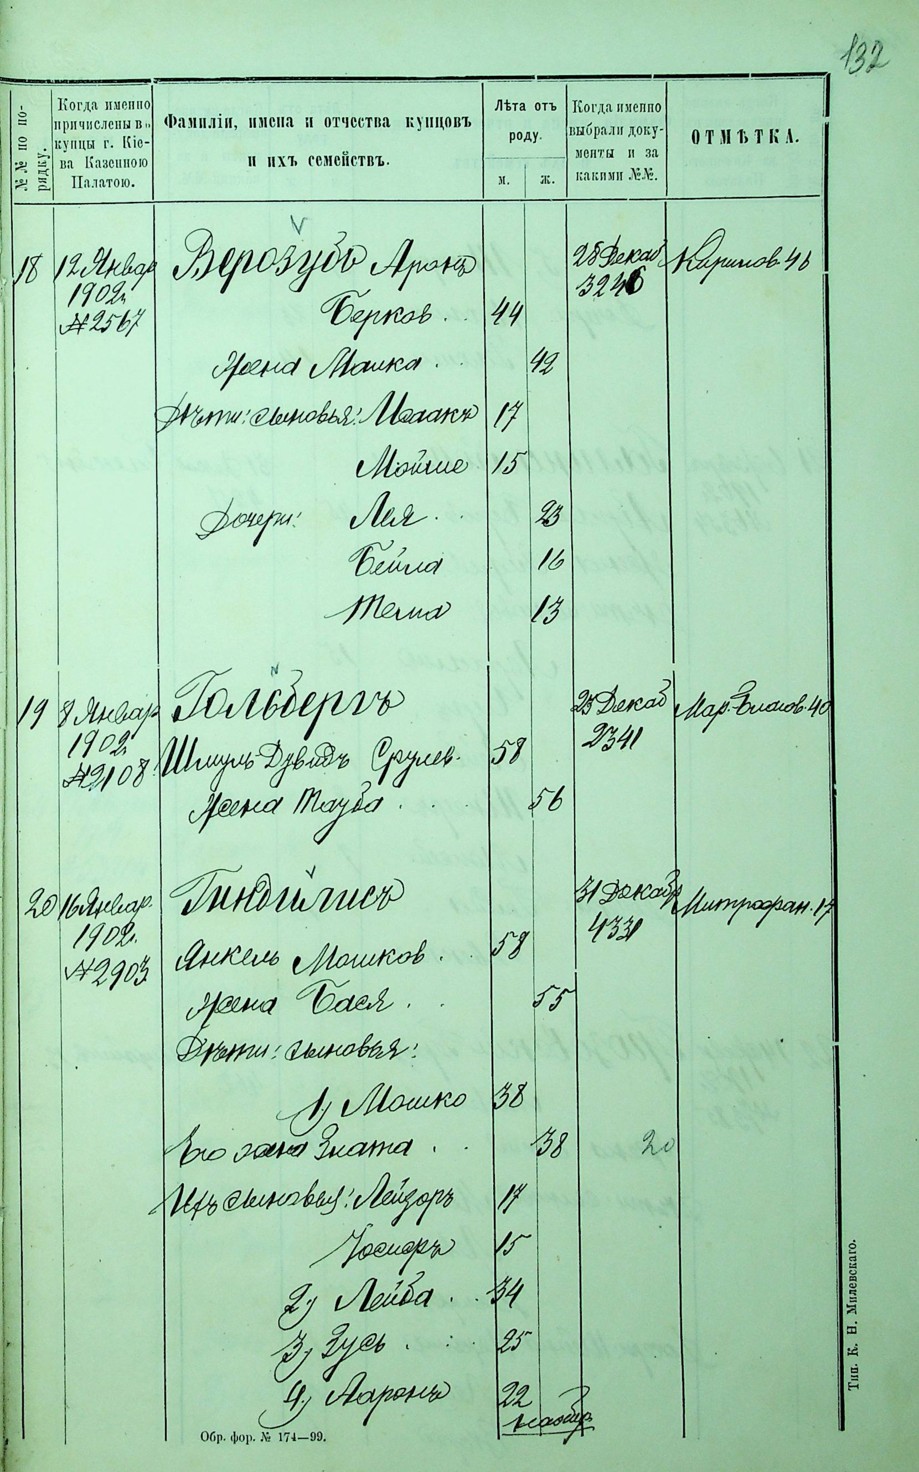 132
№№ по по-
рядку.
Когда именно
причислены в
купцы г. Кіе-
ва Казенною
Палатою.
Фамиліи, имена и отчества купцовъ
и ихъ семействъ.
Лѣта отъ
роду.
м. ж.
Когда именно
выбрали доку-
менты и за
какими №№.
ОТМѢТКА.
18 12 Январ Верозубъ Аронъ 28 Декаб
1902 3246
№2567 Берков 44
Жена Малка 42
Дѣти: сыновья: 17
Мойше 15
Дочери: Лея 23
Бейла 16
Тема 13
19 8 Январ Гольбергъ 23 Декаб 40
1902 2341
№2108 Шмуль-Дувидъ Срулев. 58
Жена Тауба 56
20 16 Январ. Гиндилисъ 31 Декабр Митрофан. 17
1902. 4331
№2903 Янкель Мошков 58
Жена Бася 55
Дѣти: сыновья:
1) Мошко 38
Его жена Злата 38 20
Ихъ сыновья: Лейзоръ 17
Иосифъ 15
2) Лейба 34
3) Зусь 25
4) Ааронъ 22
Обр. фор. № 174—99.
Тип. К. Н. Милевскаго.